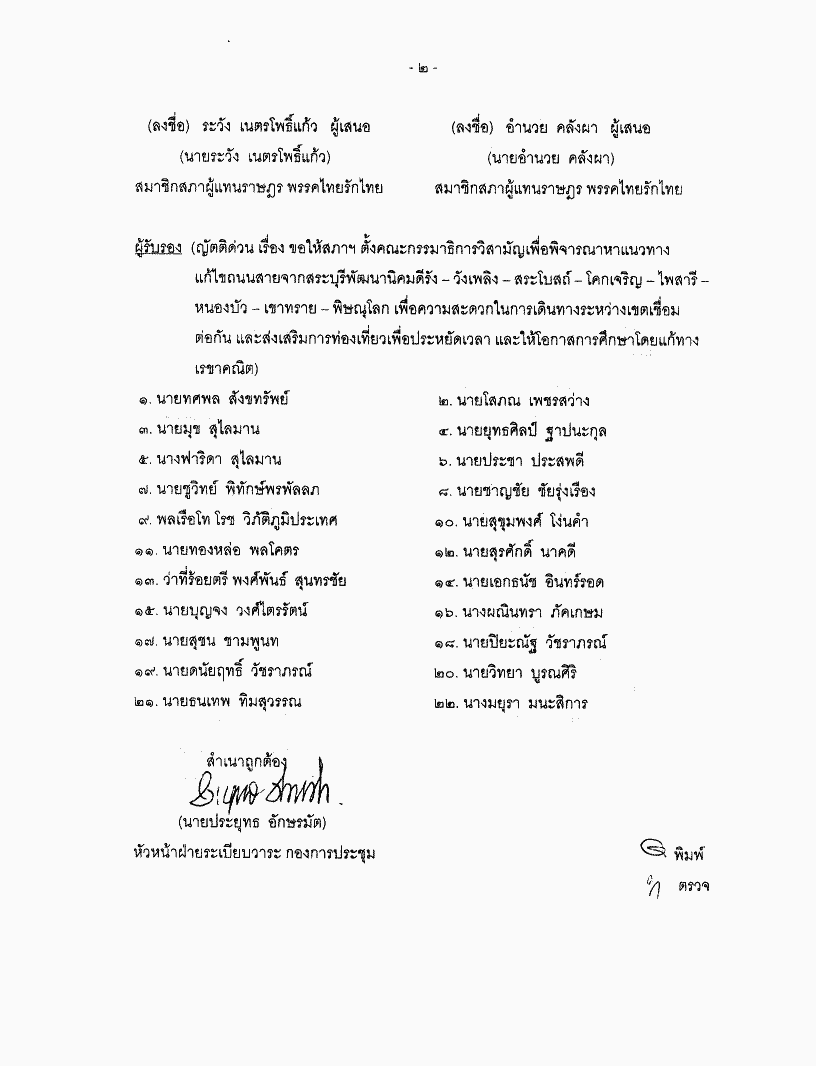 - ๒ -
(ลงชื่อ) ระวัง เนตรโพธิ์แก้ว ผู้เสนอ (ลงชื่อ) อำนวย คลังผา ผู้เสนอ
(นายระวัง เนตรโพธิ์แก้ว) (นายอำนวย คลังผา)
สมาชิกสภาผู้แทนราษฎร พรรคไทยรักไทย สมาชิกสภาผู้แทนราษฎร พรรคไทยรักไทย
ผู้รับรอง (ญัตติด่วน เรื่อง ขอให้สภาฯ ตั้งคณะกรรมาธิการวิสามัญเพื่อพิจารณาหาแนวทาง
แก้ไขถนนสายจากสระบุรีพัฒนานิคมดีรัง – วังเพลิง – สระโบสถ์ – โคกเจริญ – ไพสารี –
หนองบัว – เขาทราย – พิษณุโลก เพื่อความสะดวกในการเดินทางระหว่างเขตเชื่อม
ต่อกัน และส่งเสริมการท่องเที่ยวเพื่อประหยัดเวลา และให้โอกาสการศึกษาโดยแก้ทาง
เรขาคณิต)
๑. นายทศพล สังขทรัพย์ ๒. นายโสภณ เพชรสว่าง
๓. นายมุข สุไลมาน ๔. นายยุทธศิลป์ ฐาปนะกุล
๕. นางฟาริดา สุไลมาน ๖. นายประชา ประสพดี
๗. นายชูวิทย์ พิทักษ์พรพัลลภ ๘. นายชาญชัย ชัยรุ่งเรือง
๙. พลเรือโท โรช วิภัติภูมิประเทศ ๑๐. นายสุขุมพงศ์ โง่นคำ
๑๑. นายทองหล่อ พลโคตร ๑๒. นายสุรศักดิ์ นาคดี
๑๓. ว่าที่ร้อยตรี พงศ์พันธ์ สุนทรชัย ๑๔. นายเอกธนัช อินทร์รอด
๑๕. นายบุญจง วงศ์ไตรรัตน์ ๑๖. นางผณินทรา ภัคเกษม
๑๗. นายสุชน ชามพูนท ๑๘. นายปิยะณัฐ วัชราภรณ์
๑๙. นายดนัยฤทธิ์ วัชราภรณ์ ๒๐. นายวิทยา บูรณศิริ
๒๑. นายธนเทพ ทิมสุวรรณ ๒๒. นางมยุรา มนะสิการ
สำเนาถูกต้อง
(นายประยุทธ อักษรมัต)
หัวหน้าฝ่ายระเบียบวาระ กองการประชุม
พิมพ์
ตรวจ